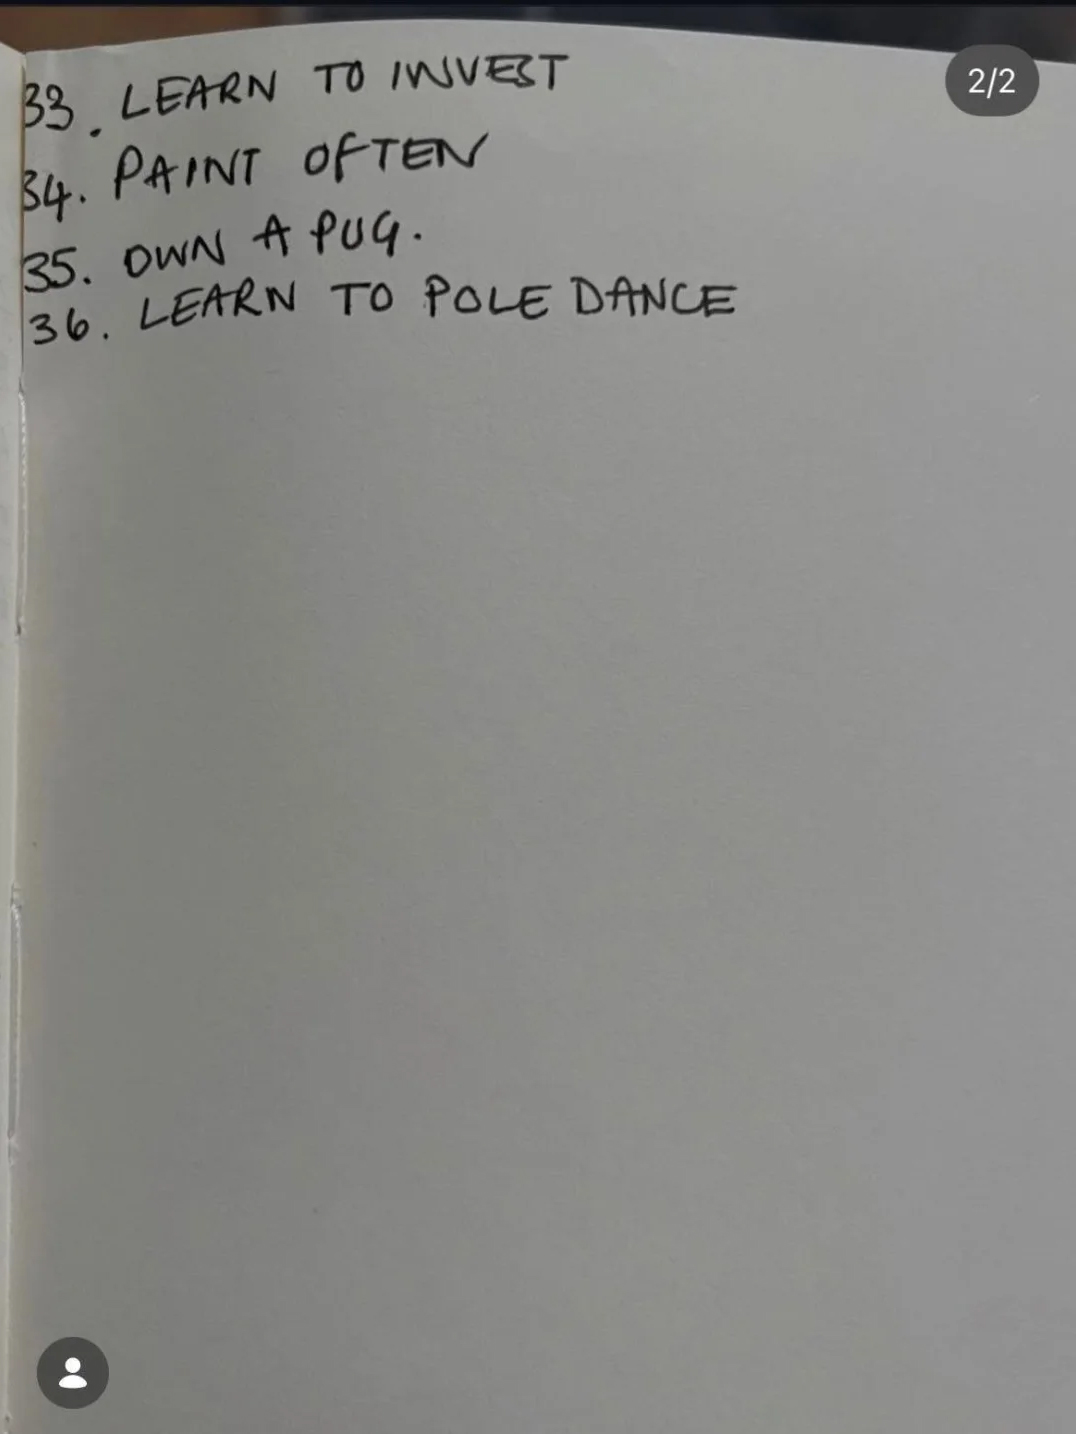 33. LEARN TO INVEST
2/2
34. PAINT OFTEN
35. OWN A PUG.
36. LEARN TO POLE DANCE